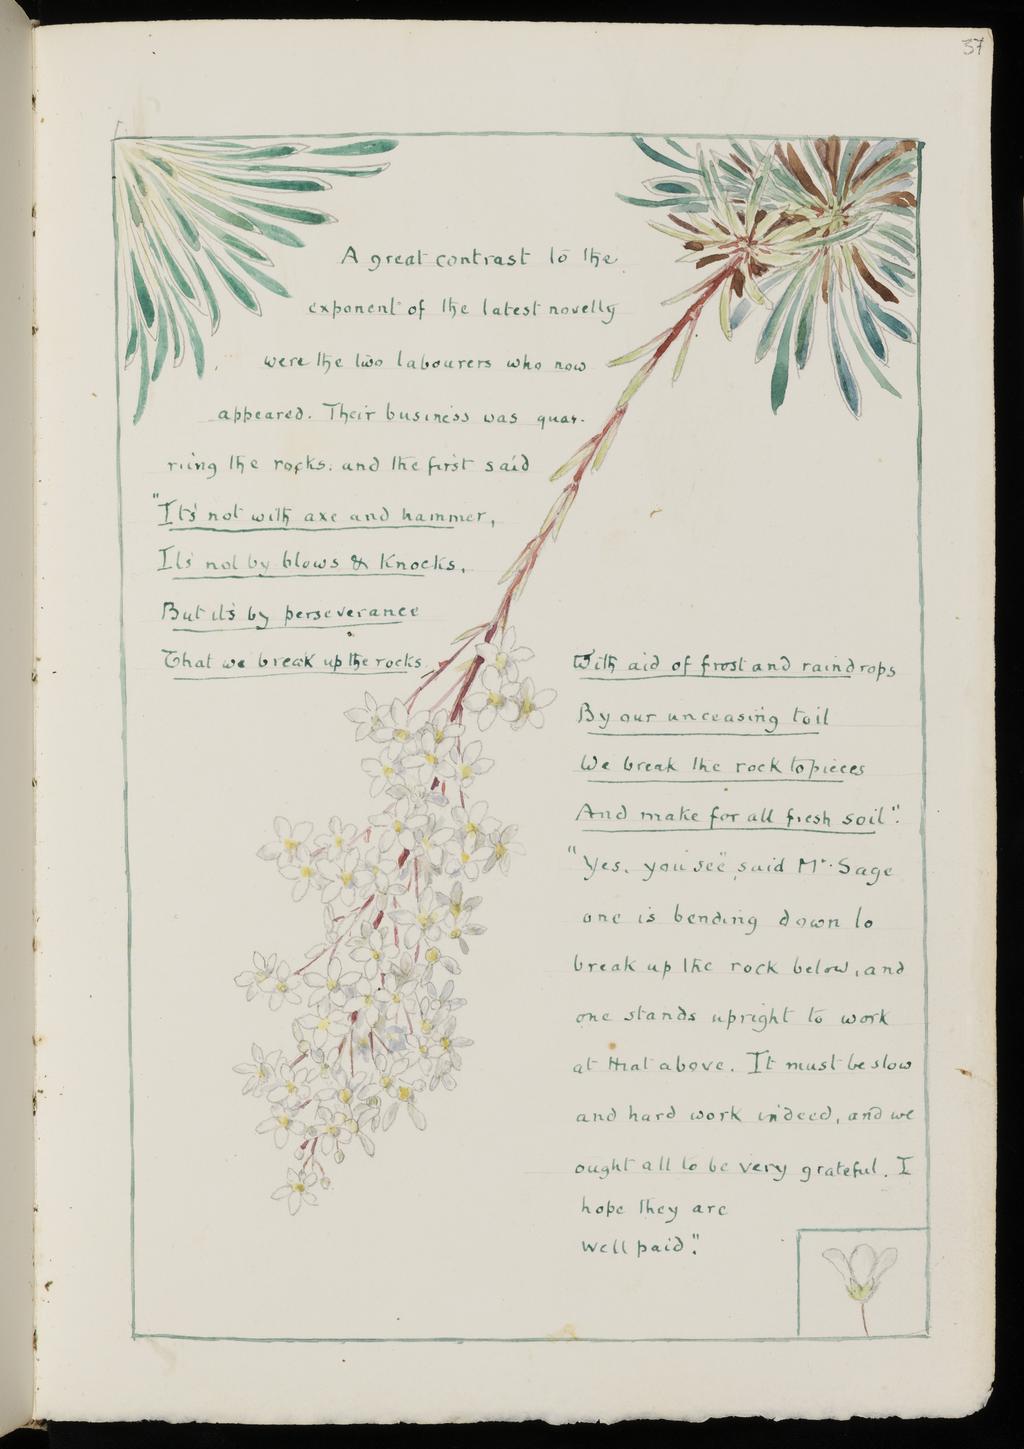 37
A great contrast to the
exponent of the latest novelty
were the two labourers who now
appeared. Their business was quar-
riing the rocks: and the first said
"Its' not with axe and hammer,
Its' not by blows & Knocks,
But it's by perseverance
That we break up the rocks.
With aid of frost and raindrops
By our unceasing toil
We break the rock to pieces
And make for all fresh soil".
"Yes, you see", said Mr. Sage
one is bending down to
break up the rock below, and
one stands upright to work
at that above. It must be slow
and hard work indeed, and we
ought all to be very grateful. I
hope they are
well paid".